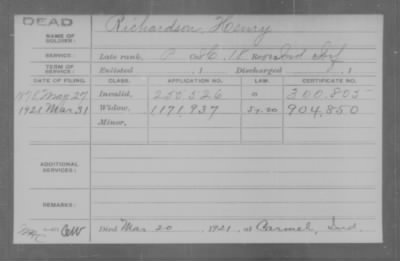 DEAD
NAME OF SOLDIER: Richardson, Henry
SERVICE: Late rank, P Co. C, 18 Reg't Ind Inf
TERM OF SERVICE: Enlisted , 1 Discharged , 1
DATE OF FILING. CLASS. APPLICATION NO. LAW. CERTIFICATE NO.
1878 May 27 Invalid, 255,526 0 200,805
1921 Mar 31 Widow, 1171,937 904,850
Minor,
ADDITIONAL SERVICES:
REMARKS:
Died Mar 20 1921, at Carmel, Ind.